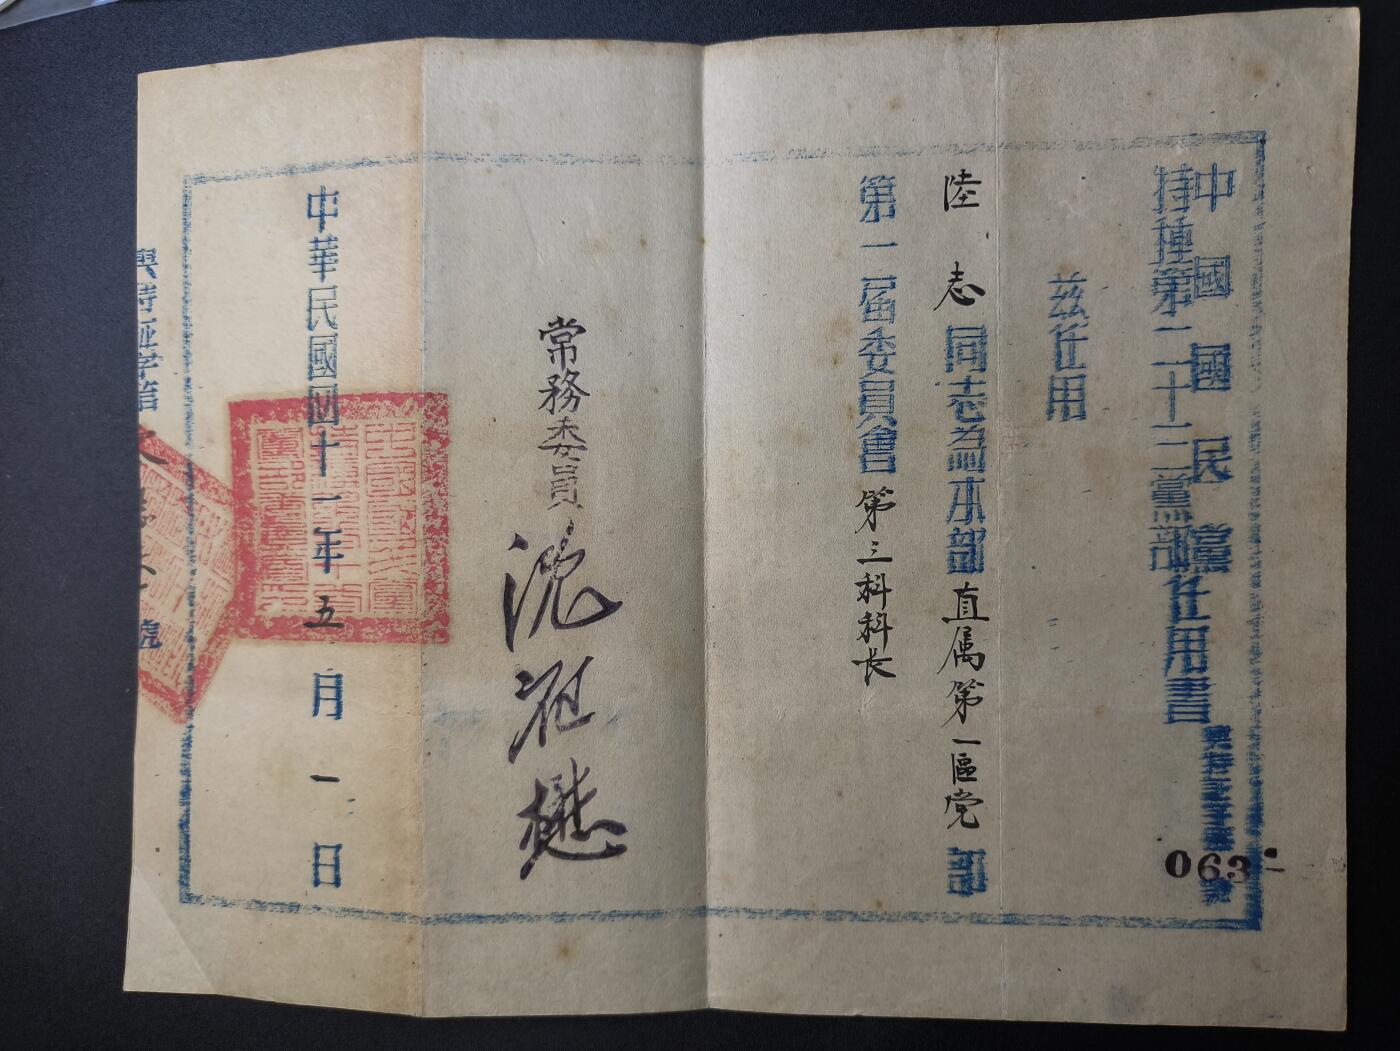 中國國民黨
特種第二十三黨部任用書
063
茲任用
陸志同志為本部直属第一區党部
第一屆委員會第三科科长
常務委員沈祖懋
中華民國四十一年五月一日
號